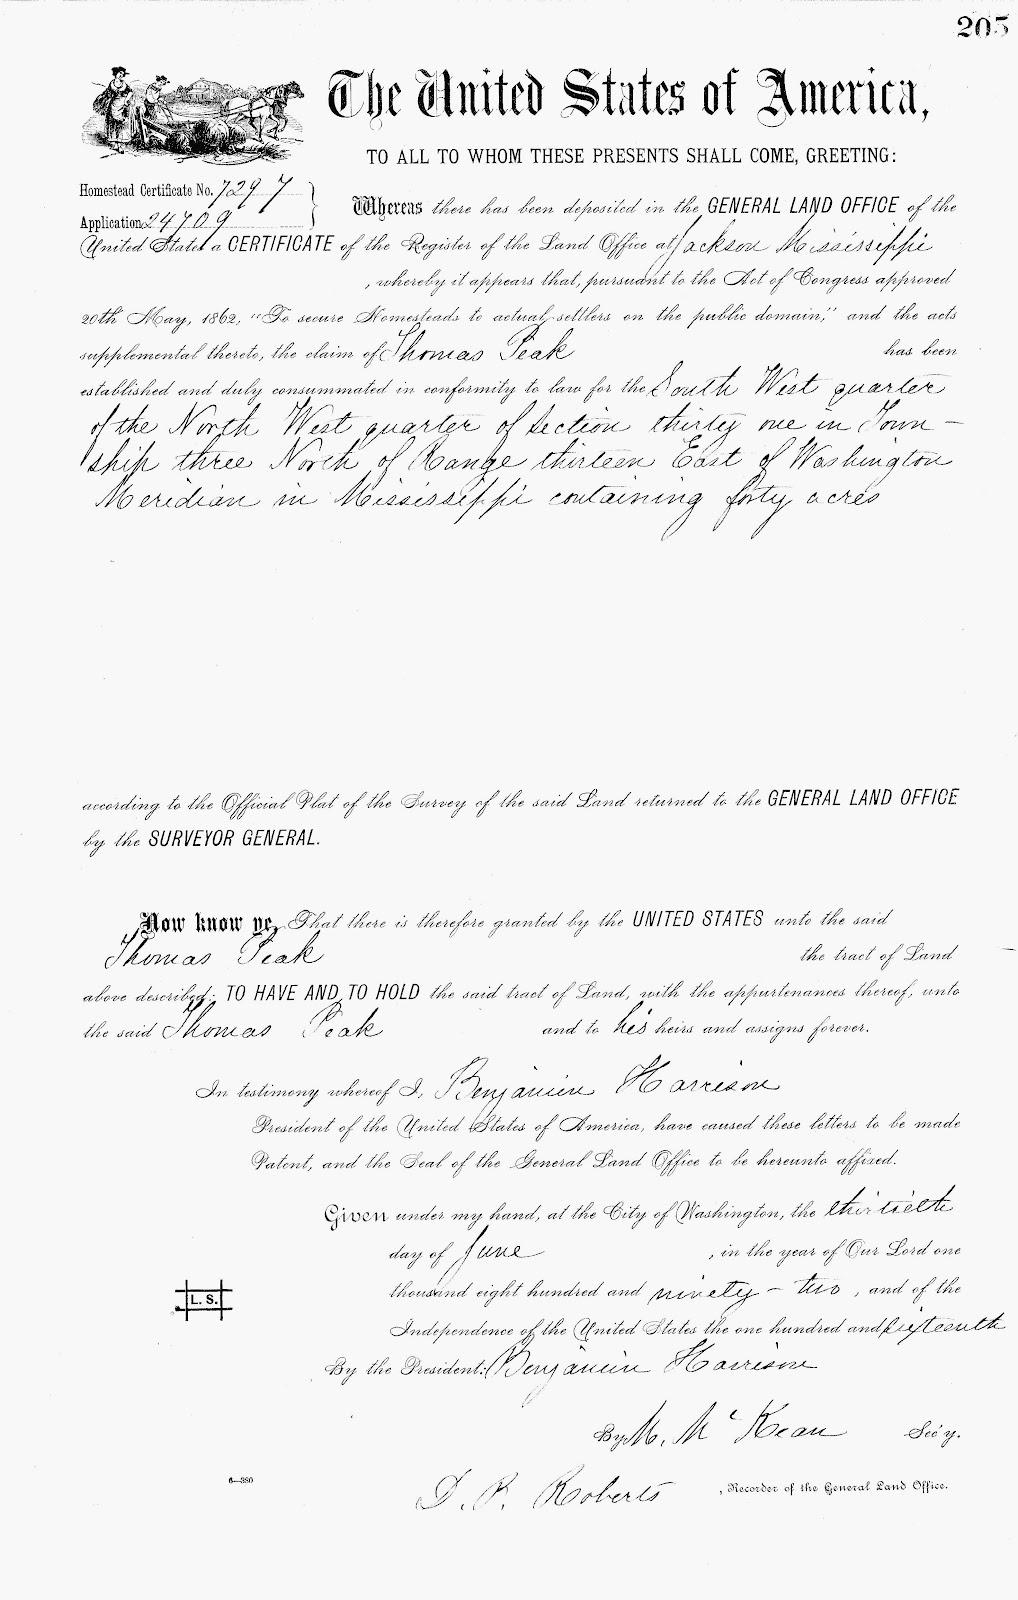 205
The United States of America,
TO ALL TO WHOM THESE PRESENTS SHALL COME, GREETING:
Homestead Certificate No. 7297
Application 24709
Whereas there has been deposited in the GENERAL LAND OFFICE of the
United States a CERTIFICATE of the Register of the Land Office at Jackson Mississippi
, whereby it appears that, pursuant to the Act of Congress approved
20th May, 1862, "To secure Homesteads to actual settlers on the public domain," and the acts
supplemental thereto, the claim of Thomas Peak has been
established and duly consummated in conformity to law for the South West quarter
of the North West quarter of Section thirty one in Town-
ship three North of Range thirteen East of Washington
Meridian in Mississippi containing forty acres
according to the Official Plat of the Survey of the said Land returned to the GENERAL LAND OFFICE
by the SURVEYOR GENERAL.
Now know ye, That there is therefore granted by the UNITED STATES unto the said
Thomas Peak the tract of Land
above described: TO HAVE AND TO HOLD the said tract of Land, with the appurtenances thereof, unto
the said Thomas Peak and to his heirs and assigns forever.
In testimony whereof I, Benjamin Harrison
President of the United States of America, have caused these letters to be made
Patent, and the Seal of the General Land Office to be hereunto affixed.
Given under my hand, at the City of Washington, the thirtieth
day of June , in the year of Our Lord one
thousand eight hundred and ninety-two , and of the
Independence of the United States the one hundred and sixteenth
By the President: Benjamin Harrison
L. S.
By M. McKean Sec'y.
6—380
D. P. Roberts , Recorder of the General Land Office.